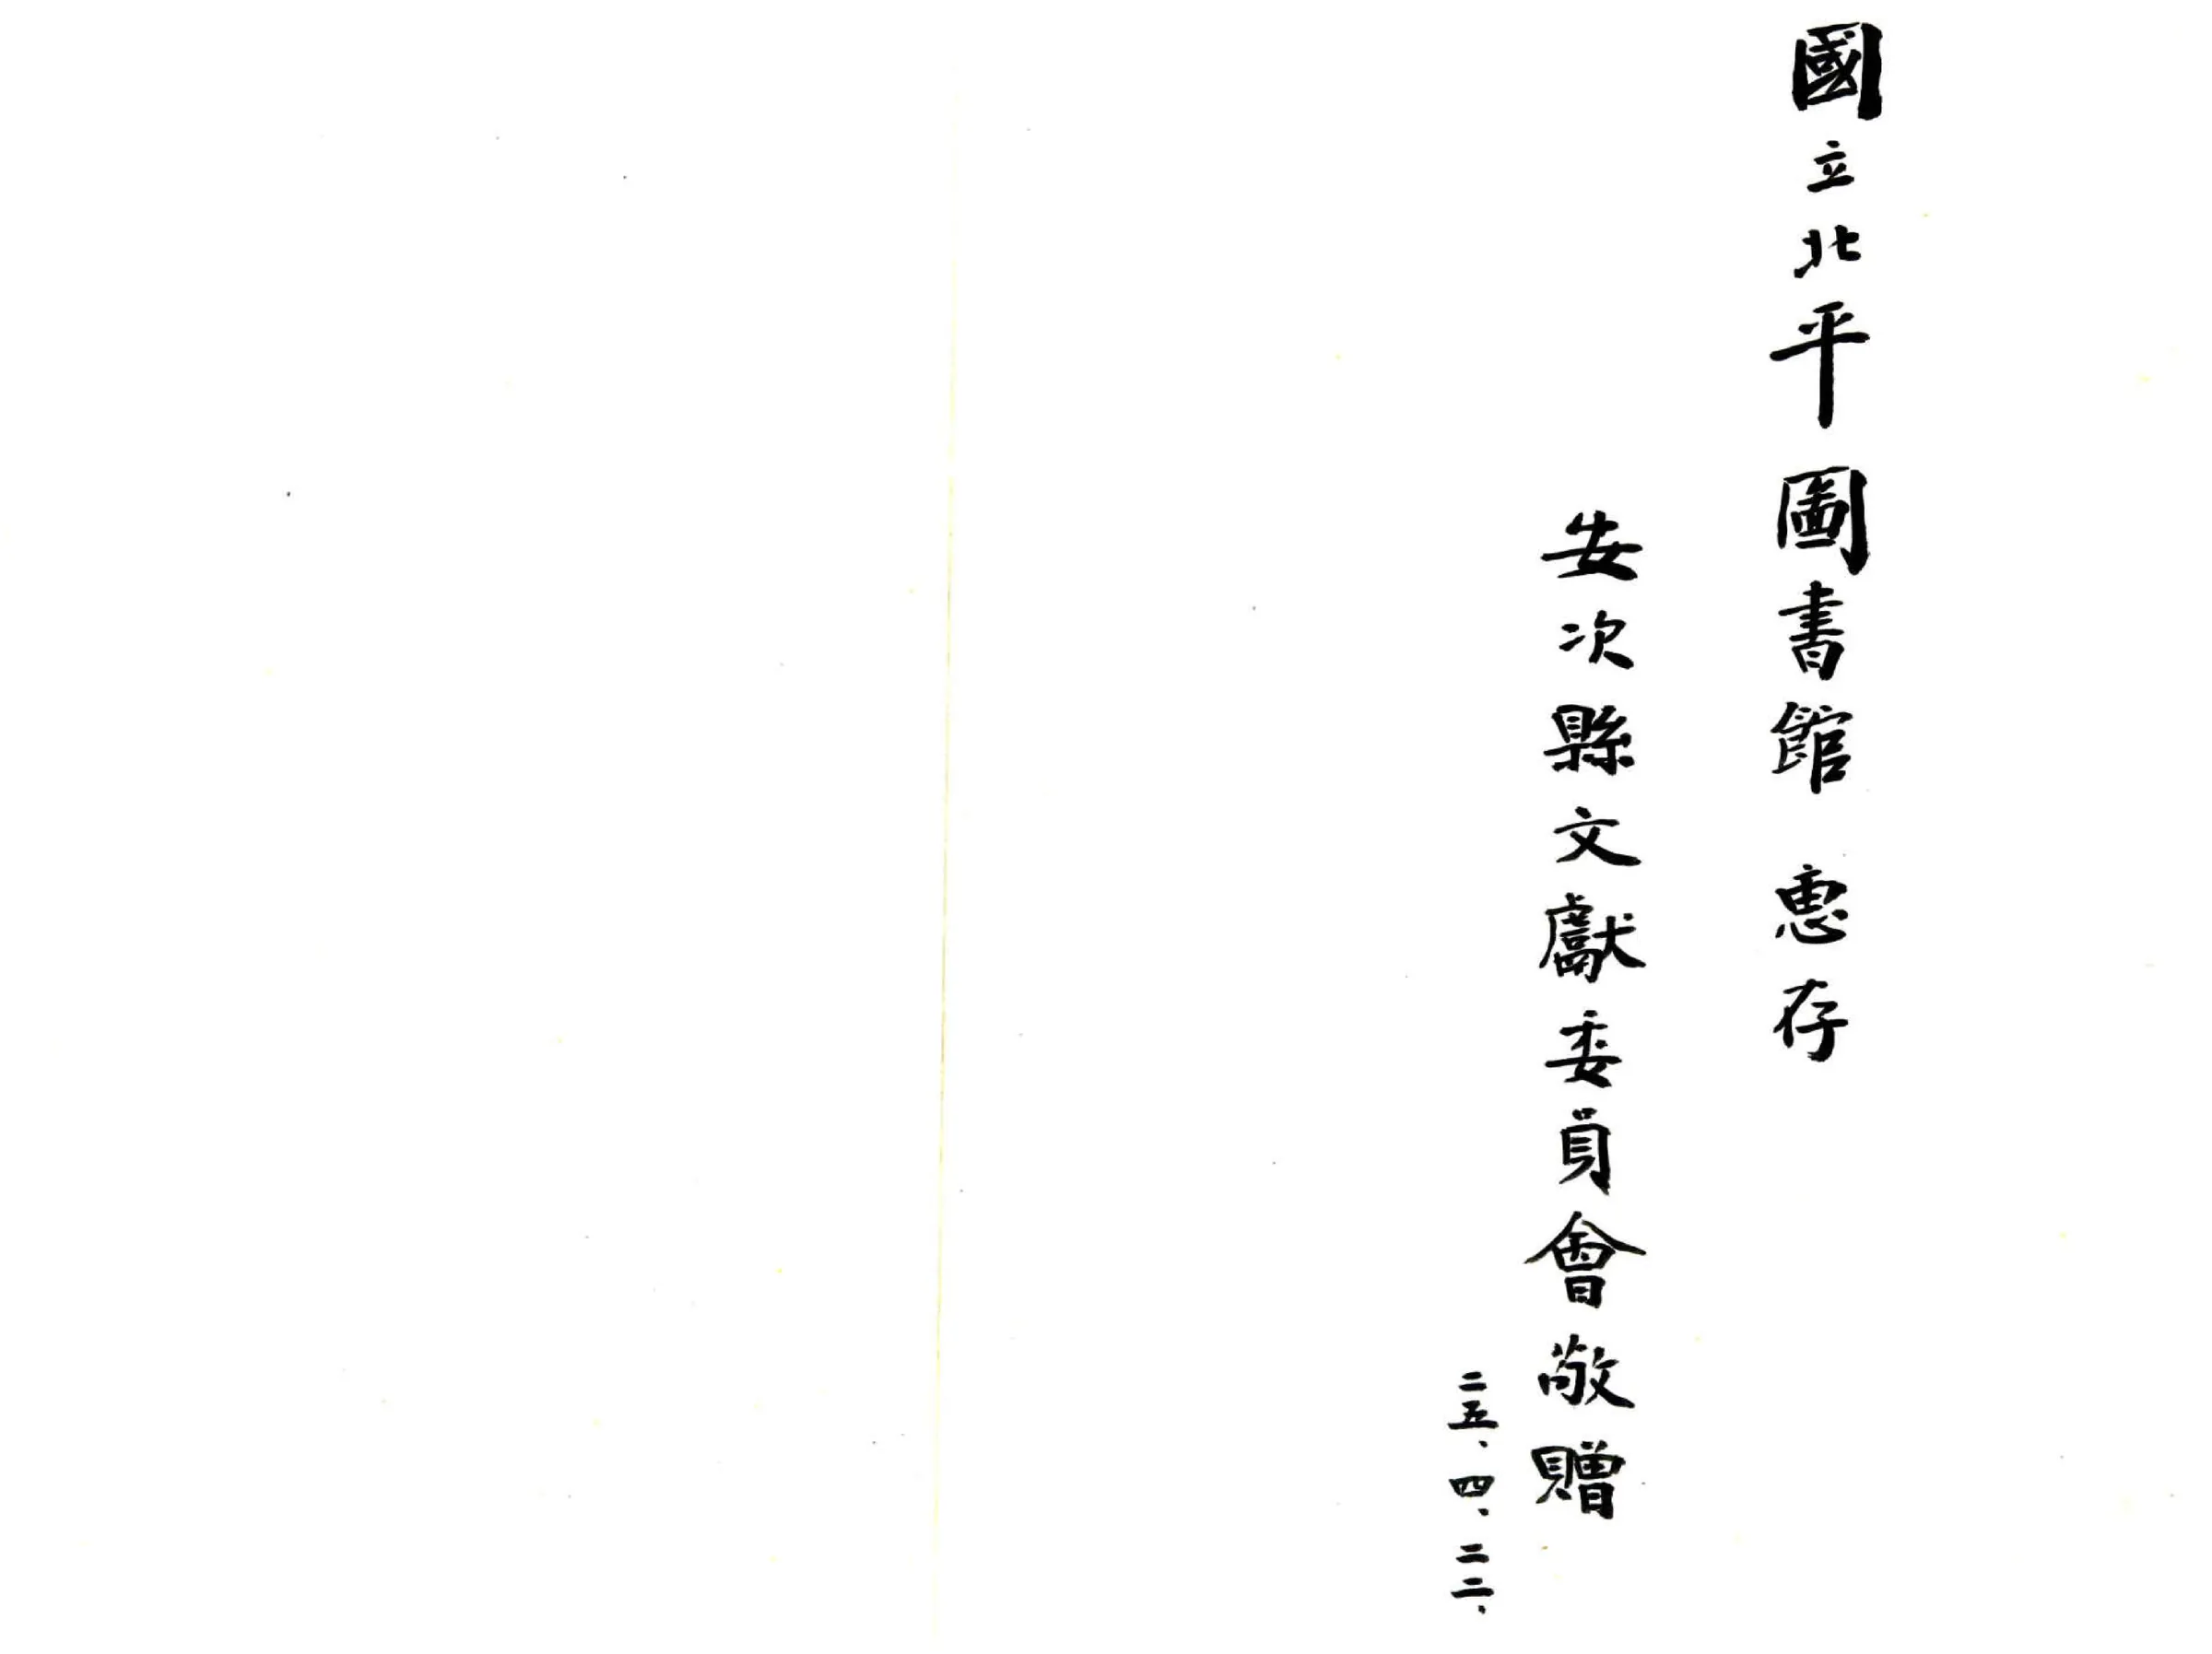 國立北平圖書館 惠存
安次縣文獻委員會敬贈
二五、四、二二、